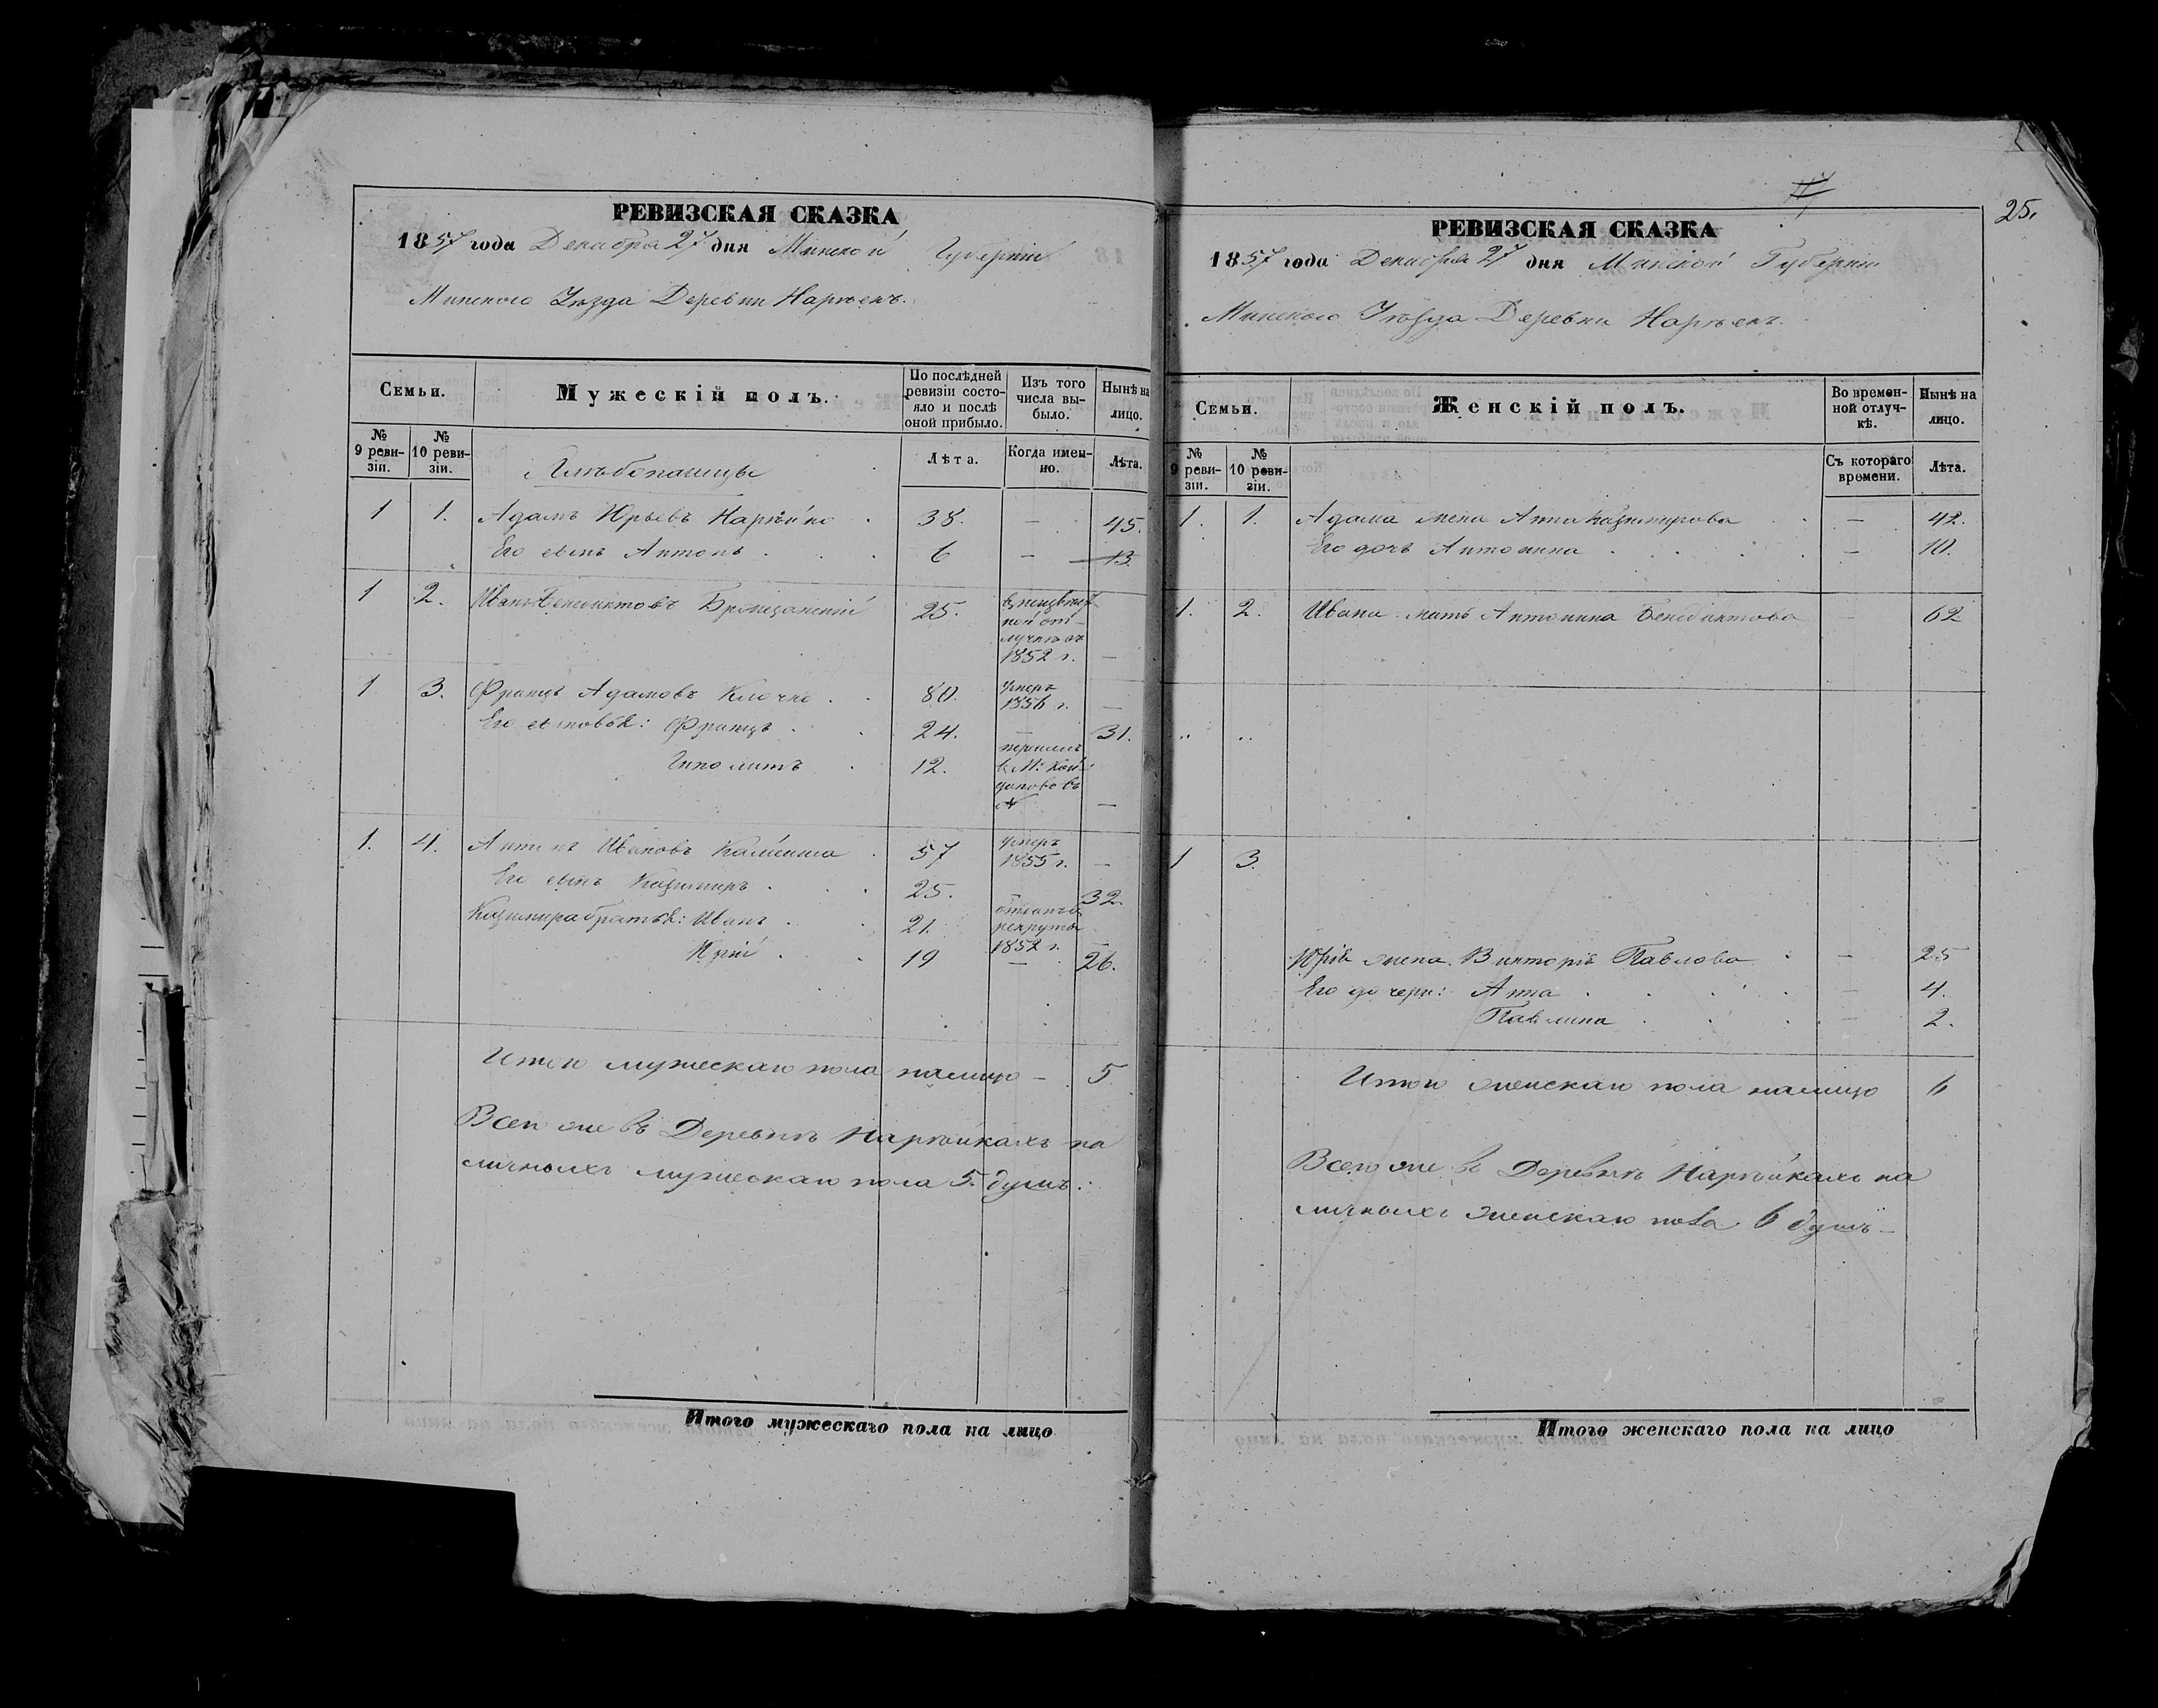 РЕВИЗСКАЯ СКАЗКА
1857 года Декабря 27 дня Минской Губерніи
Минского Уѣзда Деревни Нарѣекъ.
Семьи.
Мужескій полъ.
По послѣдней ревизіи состояло и послѣ оной прибыло.
Изъ того числа выбыло.
Нынѣ на лицо.
№ 9 ревизіи.
№ 10 ревизіи.
Лѣта.
Когда именно.
Лѣта.
Хлѣбопашцы
1 1. Адамъ Юрьевъ Нарѣйко 38. — 45.
Его сынъ Антонъ 6 — 13.
1 2. Иванъ Бенедиктовъ 25. 1852 г. —
1 3. Францъ Адамовъ Клочко 80. умеръ 1856 г. —
Его сыновья: Францъ 24. — 31.
Ипполитъ 12. —
1. 4. Антонъ Ивановъ 57 умеръ 1855 г. —
Его сынъ Казимиръ 25. 32.
Казимира братья: Иванъ 21. отданъ в рекруты 1852 г. —
Юрій 19 — 26.
Итого мужескаго пола налицо — 5
Всего же въ Деревнѣ Нарѣйкахъ на
личныхъ мужескаго пола 5. душъ.
25.
РЕВИЗСКАЯ СКАЗКА
1857 года Декабря 27 дня Минской Губерніи
Минского Уѣзда Деревни Нарѣекъ.
Семьи.
Женскій полъ.
Во временной отлучкѣ.
Нынѣ на лицо.
№ 9 ревизіи.
№ 10 ревизіи.
Съ котораго времени.
Лѣта.
1. 1. Адама жена Анна Казимирова — 42.
Его дочь Антонина — 10.
1. 2. Ивана мать Антонина Бенедиктова — 62
1 3.
Юрія жена Викторія Павлова — 25
Его дочери: Анна — 4.
Павлина — 2.
Итого женскаго пола налицо 6
Всего же въ Деревнѣ Нарѣйкахъ на
личныхъ женскаго пола 6 душъ —
Итого мужескаго пола на лицо
Итого женскаго пола на лицо